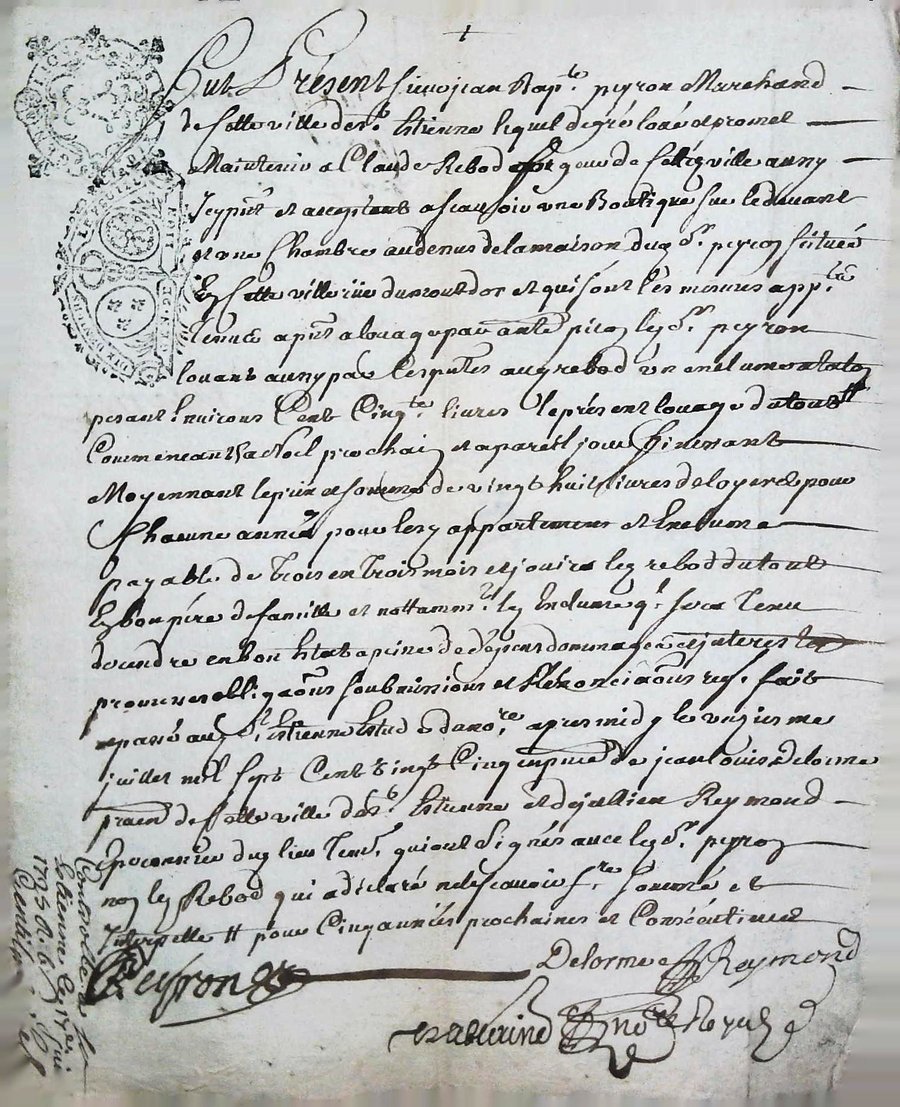 Fut Présent sieur jean Bap.te peyron Marchand
de cette ville de St. Estienne lequel de gré loüé et promet
Maintenir a Claude Rebod forgeur de cette ville auny
Icy pnt et acceptant ascavoir une Boutique sur le devant
et une Chambre au dessus de la maison dud. Sr. peyron scituée
En cette ville rüe du mont dor et qui sont les mesmes app.ts
tenus a pnt a louage par led. Sr. peyron
louant auny par Cesputes aud rebod un enclume
pesant Environs Cent Cinq.te livres le présent louage du tout #
Commencant a Noël prochain et a pareil jour finissant
Moyennant le prix et somme de vingt huit livres de loyer et pour
Chacune année pour lesd appartemens et Enclume
payable de trois en trois mois et jouira led rebod du tout
En bon pére de famille et nottamm.t led Enclume q. sera tenu
de rendre en bon Estat a peine de dépens dommages et interests
promesses obligaons soubmissions et Rénonciaons req. fait
et passé aud St. Estienne Estude du no.re apres midy le vingtiesme
juillet mil sept Cent vingt Cinq en pnce de jean louis Delorme
pratn de cette ville de St. Estienne et de jullien Reymond
dud lieu tem. qui ont Signés avec led Sr. peyron
non led Rebod qui a déclaré ne scavoir f.re sommé et
Interpellé # pour Cinq années prochaines et Consécutives
Peyron
Delorme Reymond
no.re Royal
Controllé a St
Estienne le
1725